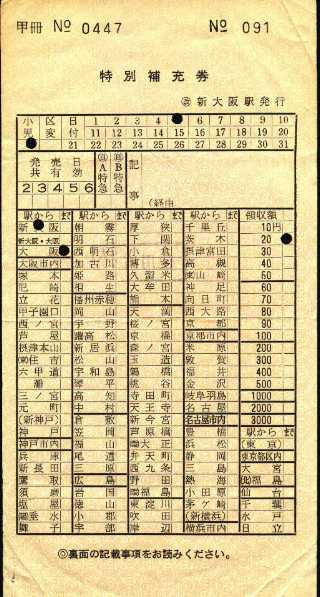 甲冊 № 0447 № 091
特別補充券
新大阪駅発行
小 区 日 1 2 3 4 6 7 8 9 10
児 変 付 11 12 13 14 15 16 17 18 19 20
21 22 23 24 25 26 27 28 29 30 31
発売日
共有効
2 3 4 5 6
A特急
B特急
記事
(経由
駅から まで 駅から まで 駅から まで 駅から まで 領収額
新 阪 朝霧 厚狭 千里丘 10円
新大阪・大阪 明石 下関 茨木 20
大阪 西明石 小倉 摂津富田 30
大阪市内 加古川 博多 高槻 40
塚本 姫路 久留米 山崎 60
尼崎 相生 大牟田 神足 60
立花 播州赤穂 熊本 向日町 70
甲子園口 岡山 天満 西大路 80
西ノ宮 宇野 桜ノ宮 京都 90
芦屋 高松 京橋 京都市内 100
摂津本山 新居浜 森ノ宮 米原 200
住吉 松山 玉造 敦賀 300
六甲道 宇和島 鶴橋 福井 400
灘 琴平 桃谷 金沢 500
三ノ宮 高知 寺田町 岐阜羽島 1000
元町 中村 天王寺 名古屋 2000
(新神戸) 倉敷 新今宮 名古屋市内 3000
神戸 笠岡 芦原橋 豊橋 駅から まで
神戸市内 福山 大正 浜松 (東京)
兵庫 尾道 弁天町 静岡 東京都区内
新長田 三原 西九条 三島 大宮
鷹取 広島 野田 熱海 福島
須磨 岩国 福島 小田原 仙台
塩屋 徳山 東淀川 茅ケ崎 千葉
垂水 小郡 吹田 (新横浜) 水戸
舞子 宇部 岸辺 横浜市内 日立
◎裏面の記載事項をお読みください。